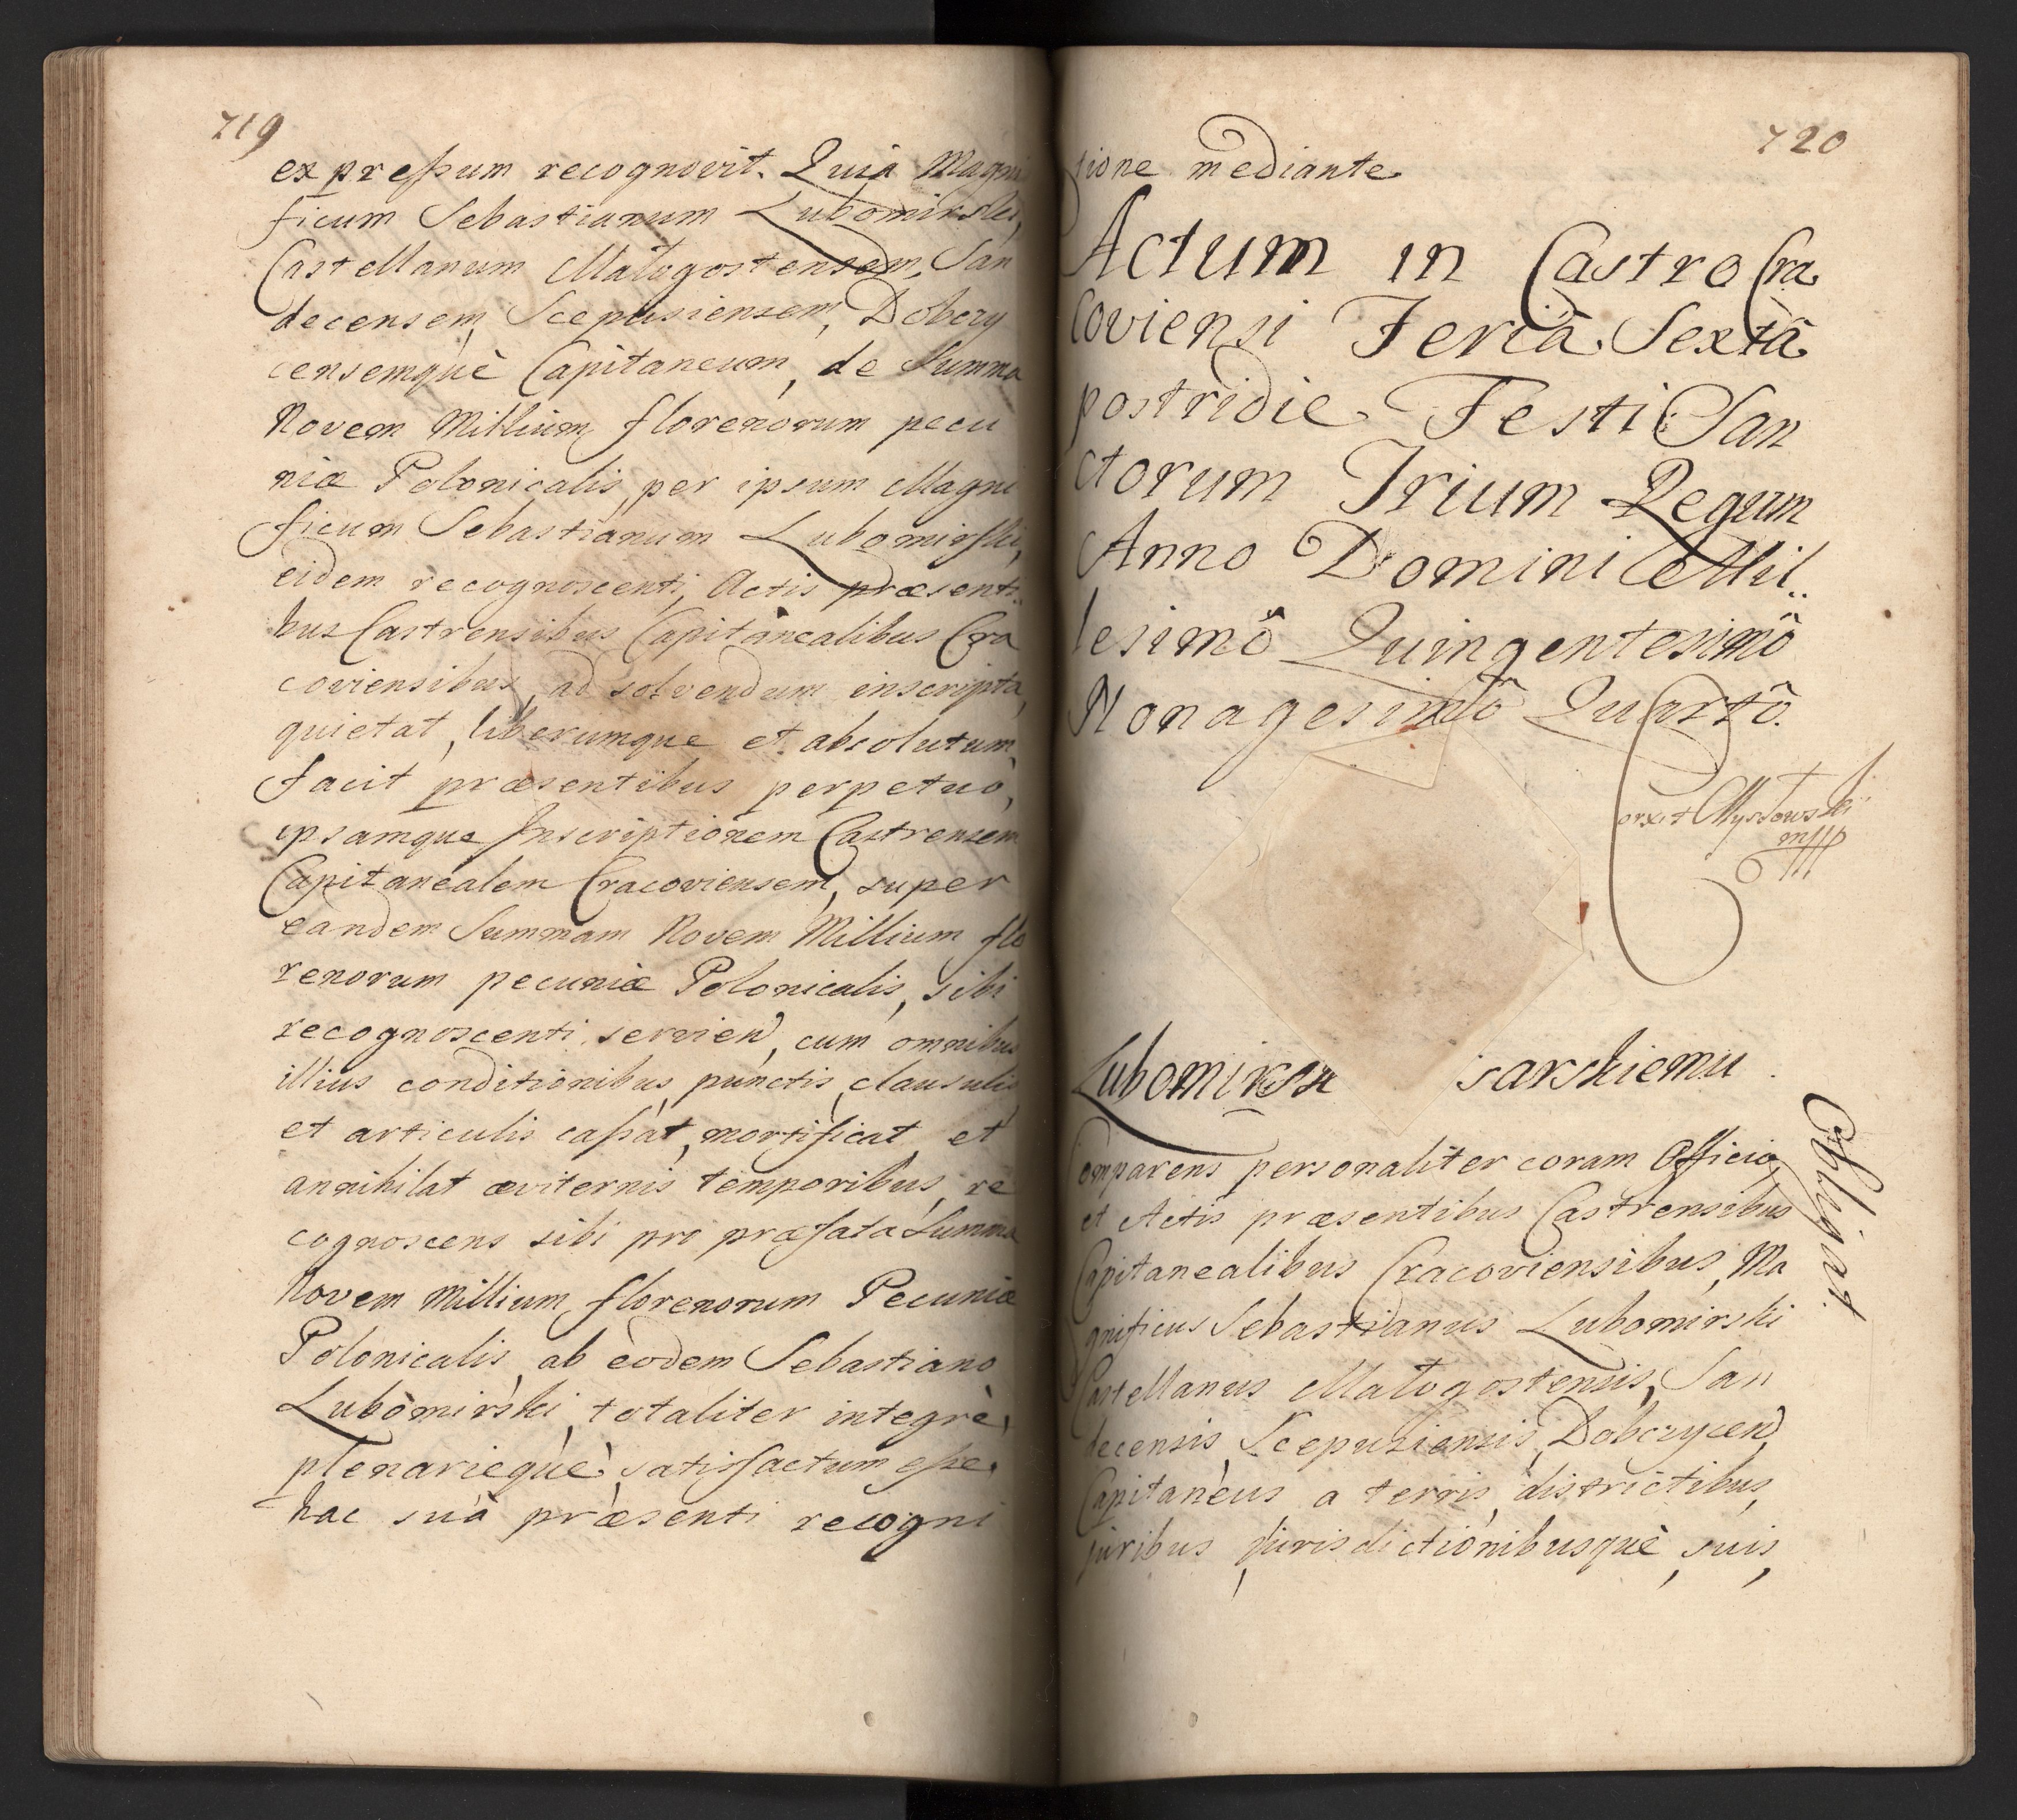 719
expressum recognovit. Quia Magni
ficum Sebastianum Lubomirski,
Castellanum Małogostensem, San
decensem, Scepusiensem, Dobczy
censemquè Capitaneum, de Summa
Novem Millium florenorum pecu
niæ Polonicalis, per ipsum Magni
ficum Sebastianum Lubomirski,
eidem recognoscenti, Actis præsenti
bus Castrensibus Capitanealibus Cra
coviensibus, ad solvendum inscripta,
quietat, liberumque et absolutum,
facit præsentibus perpetuò,
ipsamque Inscriptionem Castrensem
Capitanealem Cracoviensem, super
eandem Summam Novem Millium flo
renorum pecuniæ Polonicalis, sibi
recognoscenti servien, cum omnibus
illius conditionibus, punctis, clausulis
et articulis cassat, mortificat, et
annihilat æviternis temporibus, re
cognoscens sibi pro præfata Summa
Novem Millium, florenorum Pecuniæ
Polonicalis, ab eodem Sebastiano
Lubomirski, totaliter integrè,
plenariequè, satisfactum esse.
hac suà præsenti recogni
720
tione mediante
Actum in Castro Cra
coviensi Ferià Sextâ
postridie Festi San
ctorum Trium Regum
Anno Domini Mil..
lesimô Quingentesimô
Nonagesimô Quartô.
Lubomirski sarskiemu
Obligat
Comparens personaliter coram Officio,
et Actis præsentibus Castrensibus
Capitanealibus Cracoviensibus, Ma
gnificus Sebastianus Lubomirski
Castellanus Małogostensis, San
decensis, Scepusiensis, Dobczycen
Capitaneus a terris, districtibus,
juribus, jurisdictionibusquè, suis,